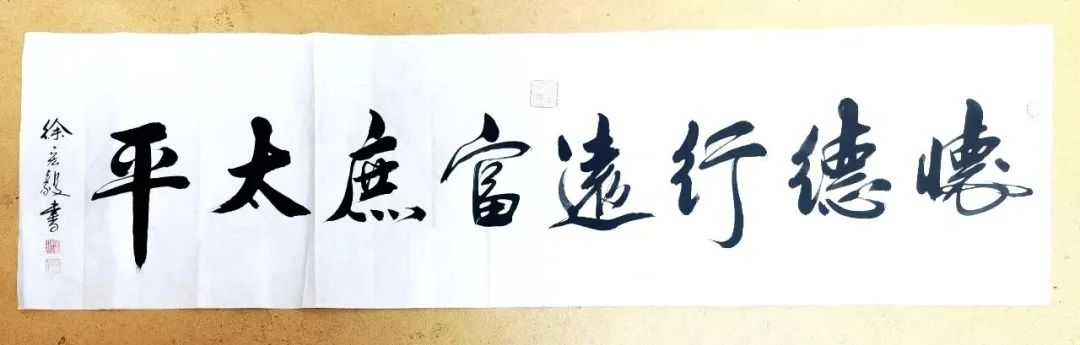 懷德行遠富庶太平
徐宏毅書